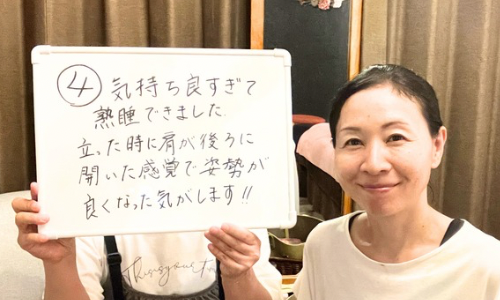 ④気持ち良すぎて
熟睡できました.
立った時に肩が後ろに
開いた感覚で姿勢が
良くなった気がします!!